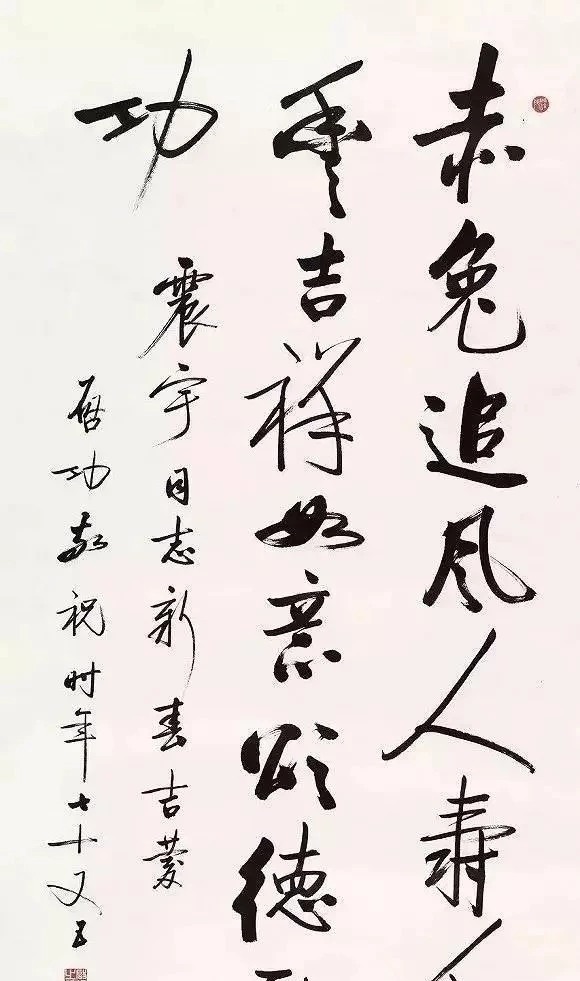 赤兔追风人寿
豐吉祥如意颂德
功
震宇同志新春吉慶
启功敬祝时年七十又五